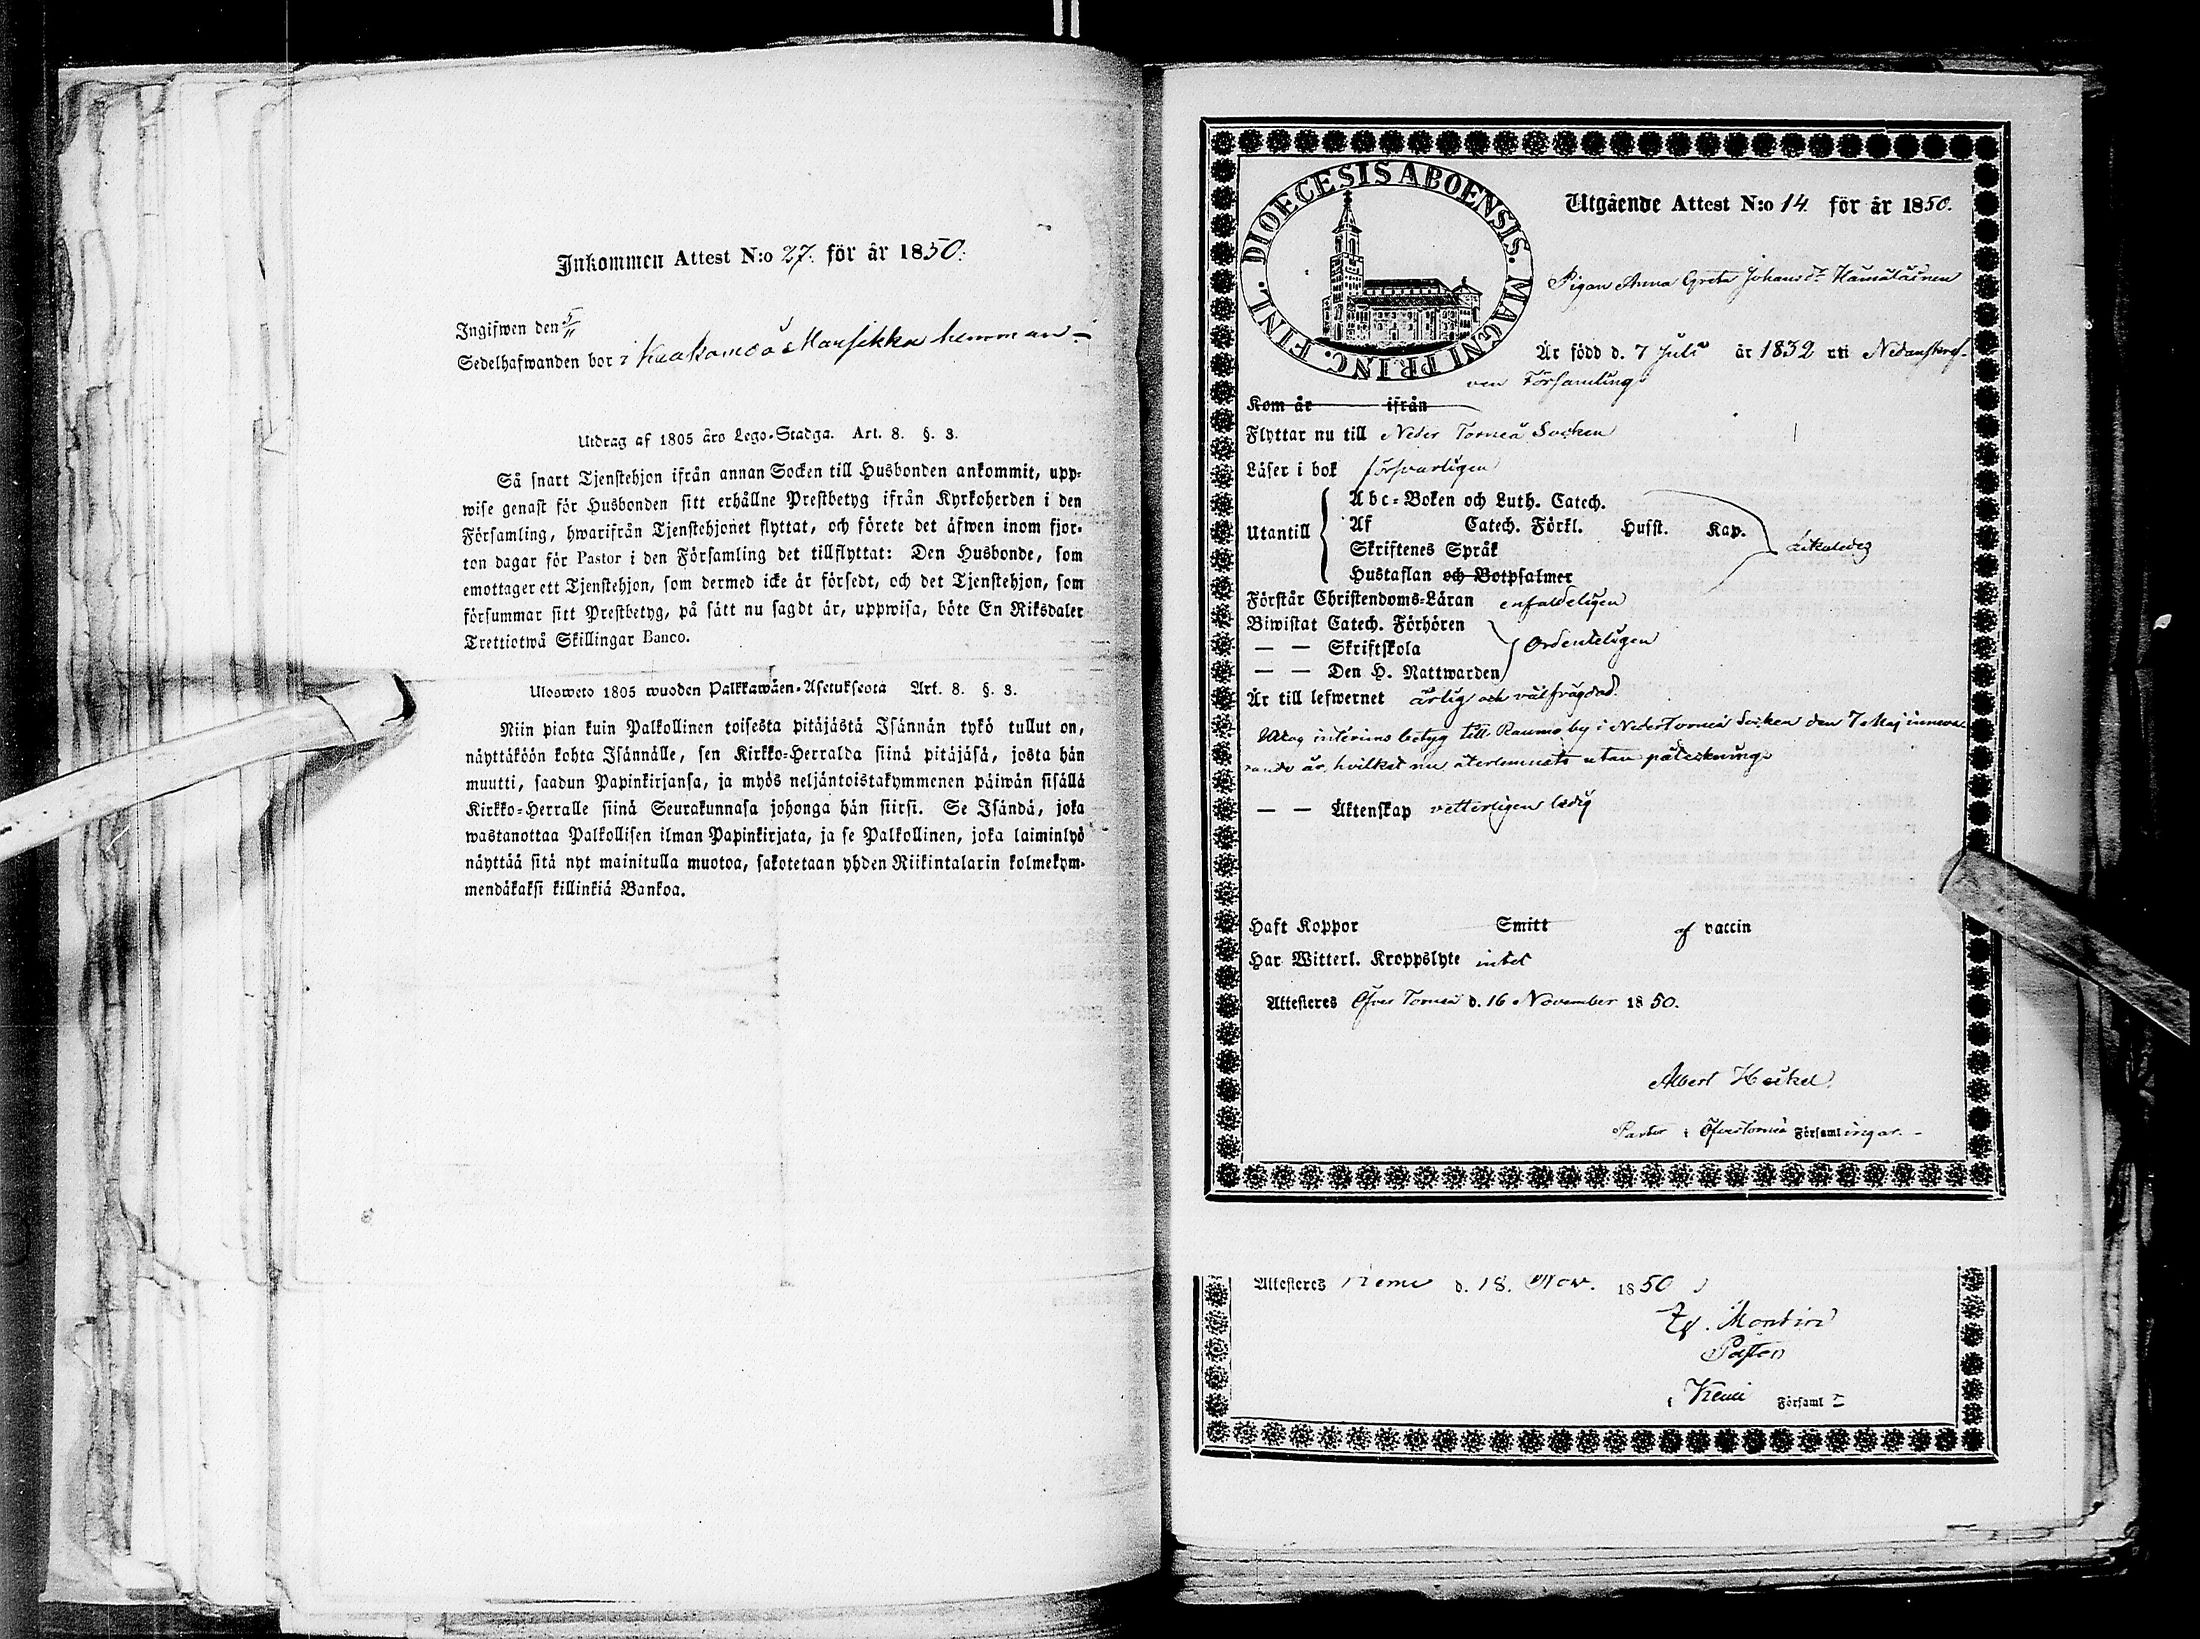 Inkommen Attest N:o 27. för år 1850.
Ingifwen den 5/11
Sedelhafwanden bor i Kaakamo å Mansikka hemman. -
Utdrag af 1805 åro Lego-Stadga. Art. 8. §. 3.
Så snart Tjenstehjon ifrån annan Socken till Husbonden ankommit, upp-
wise genast för Husbonden sitt erhållne Prestbetyg ifrån Kyrkoherden i den
Församling, hwarifrån Tjenstehjonet flyttat, och förete det äfwen inom fjor-
ton dagar för Pastor i den Församling det tillflyttat: Den Husbonde, som
emottager ett Tjenstehjon, som dermed icke är försedt, och det Tjenstehjon, som
försummar sitt Prestbetyg, på sätt nu sagdt är, uppwisa, böte En Riksdaler
Trettiotwå Skillingar Banco.
Ulosweto 1805 wuoden Palkkawäen-Asetuksesta Art. 8. §. 3.
Niin pian kuin Palkollinen toisesta pitäjästä Isännän tykö tullut on,
näyttäköön kohta Isännälle, sen Kirkko-Herralda siinä pitäjäsä, josta hän
muutti, saadun Papinkirjansa, ja myös neljäntoistakymmenen päiwän sisällä
Kirkko-Herralle siinä Seurakunnasa johonga hän siirsi. Se Isändä, joka
wastanottaa Palkollisen ilman Papinkirjata, ja se Palkollinen, joka laiminlyö
näyttää sitä nyt mainitulla muotoa, sakotetaan yhden Riikintalarin kolmekym-
mendäkaksi killinkiä Bankoa.
DIOECESIS ABOENSIS. MAGNI PRINC. FINL.
Utgående Attest N:o 14. för år 1850.
Pigan Anna Greta Johansdr Hämäläinen
Är född d. 7 Juli år 1832 uti Nedanskref-
ven Församling
Kom år ifrån
Flyttar nu till Neder Torneå Socken
Läser i bok försvarligen
Utantill
Abc-Boken och Luth. Catech.
Af Catech. Förkl. Husst. Kap.
Skriftenes Språk
Hustaflan och Botpsalmer
Likaledes
Förstår Christendoms-Läran enfaldeligen
Biwistat Catech. Förhören
— — Skriftskola Ordenteligen
— — Den H. Nattwarden
Är till lefwernet ärlig och välfrägdad.
interims betyg till Raumo by i NederTorneå Socken den 7 Maj inneva-
rande år, hvilket nu återlemnats utan påteckning.
— — Äktenskap vetterligen ledig
Haft Koppor Smitt af vaccin
Har Witterl. Kroppslyte intet
Attesteres Öfver Torneå d. 16 November 1850.
Albert Heikel.
Pastor i Öfver Torneå Församlingar. -
Attesteres Kemi d. 18. Nov. 1850
Pastor
i Kemi Församl